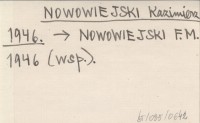 NOWOWIEJSKI Kazimiera
1946. → NOWOWIEJSKI F.M.
1946 (wsp.).